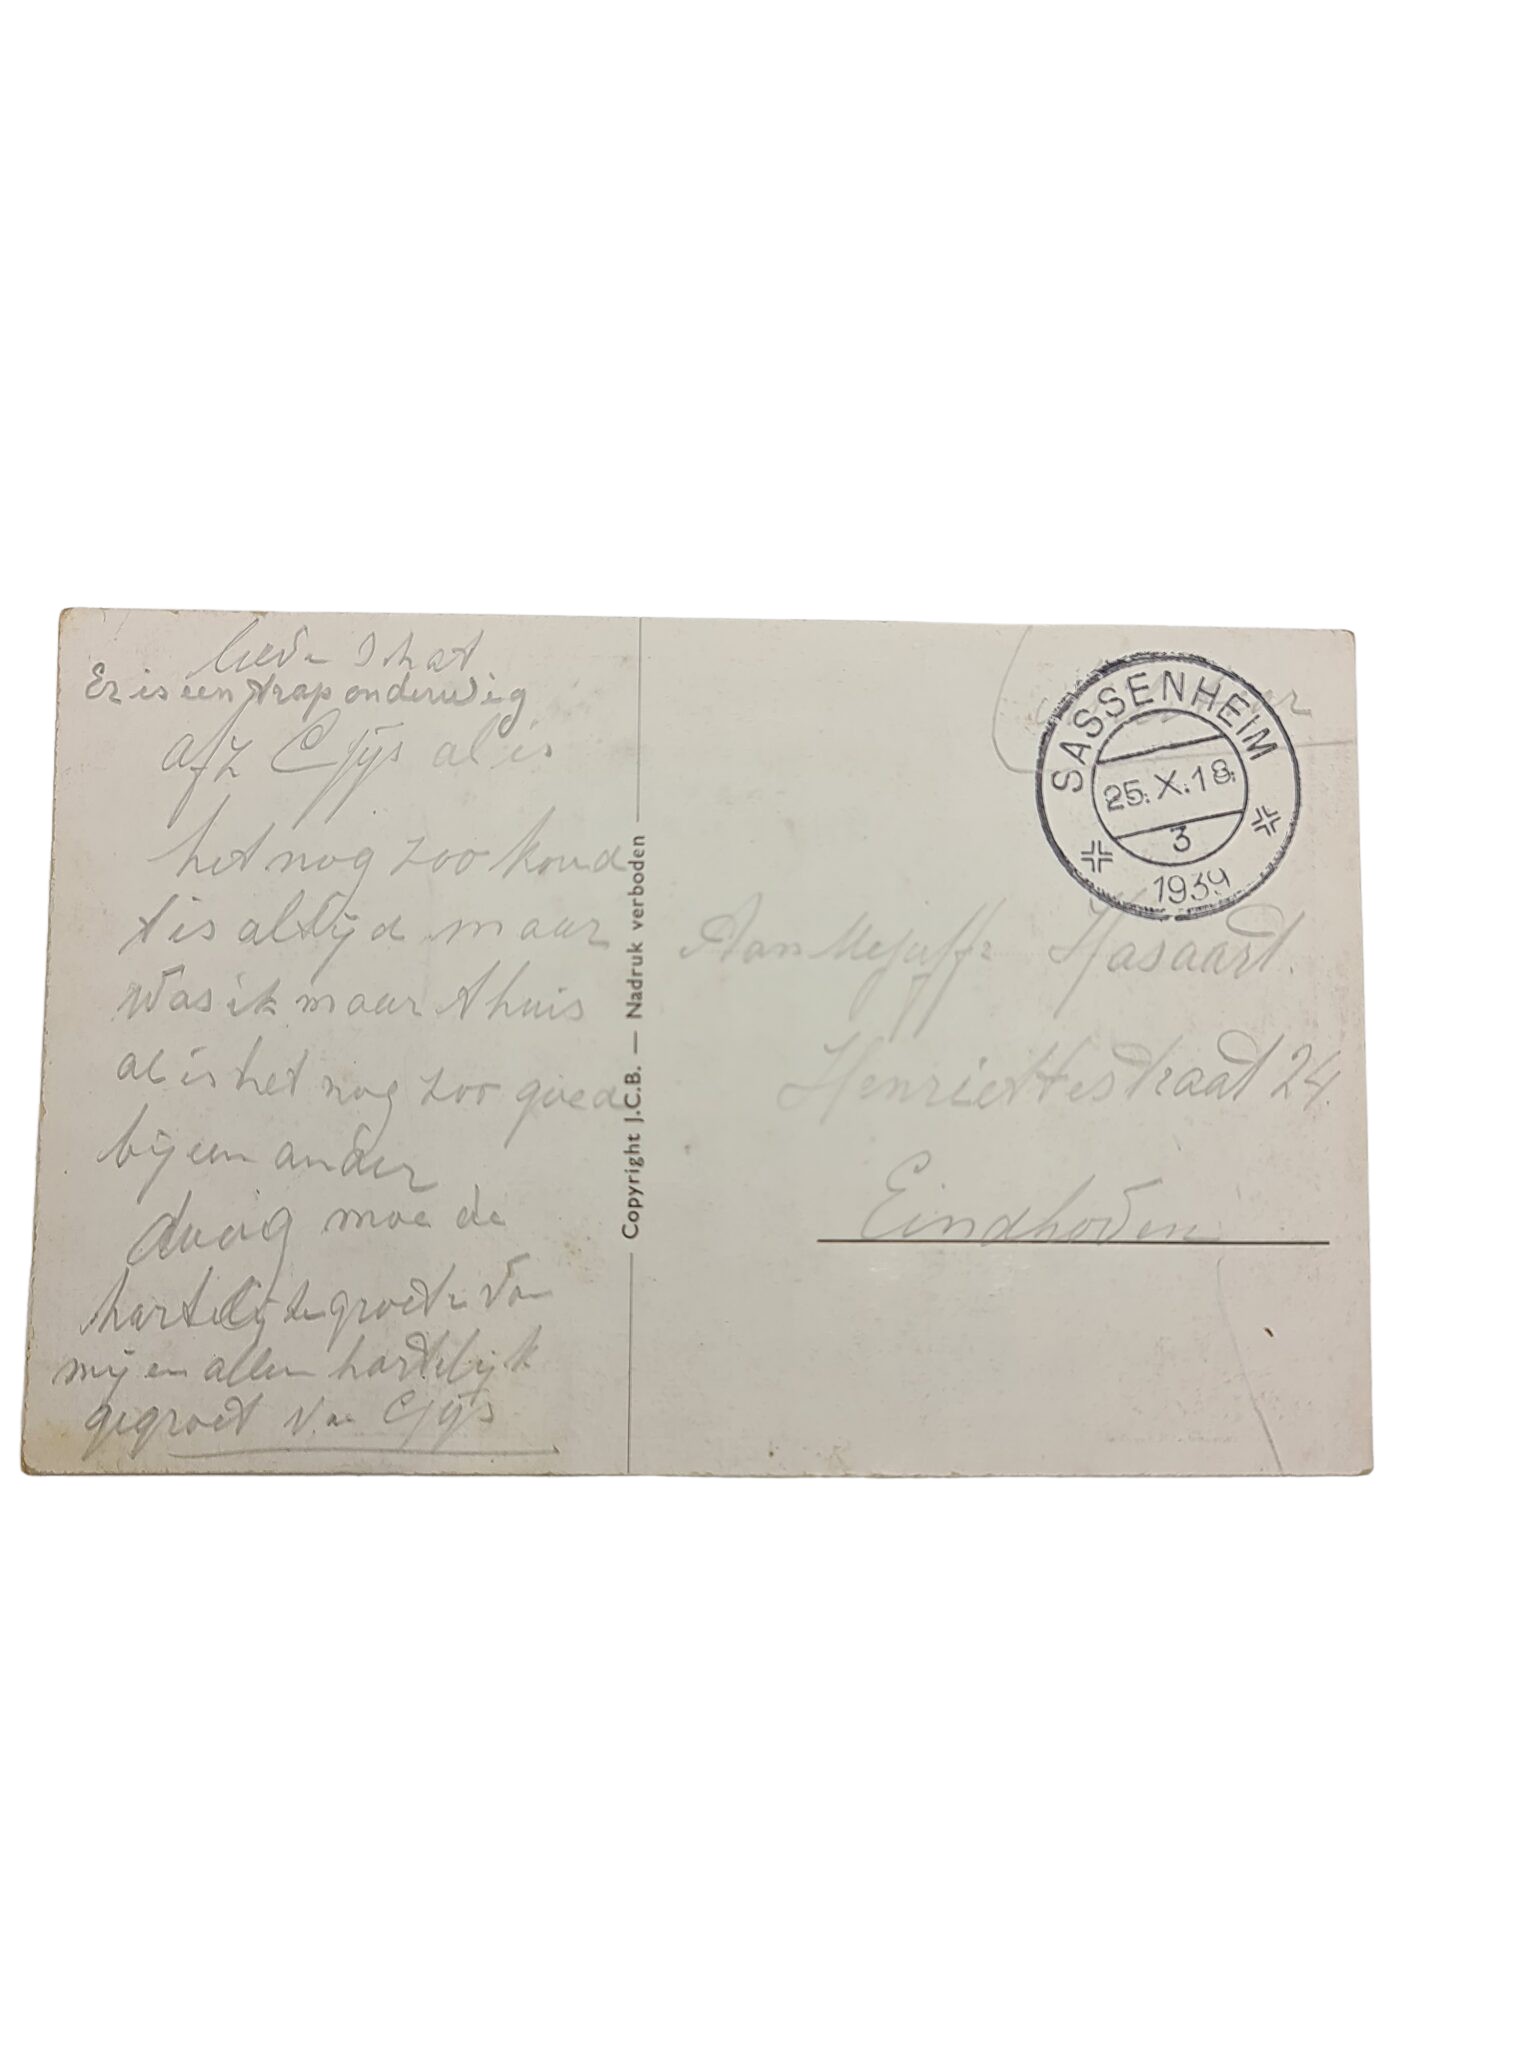 lieve Schat
Er is een trap onderweg
afz Gijs al is
het nog zoo koud
t is altijd maar
was ik maar thuis
al is het nog zoo goed
bij een ander
daag moe de
hartelijke groete van
mij en allen hartelijk
gegroet van Gijs
Copyright J.C.B. — Nadruk verboden
SASSENHEIM
25.X.18.
3
1939
Aan Mejuffr Hasaart.
Henriettestraat 24.
Eindhoven